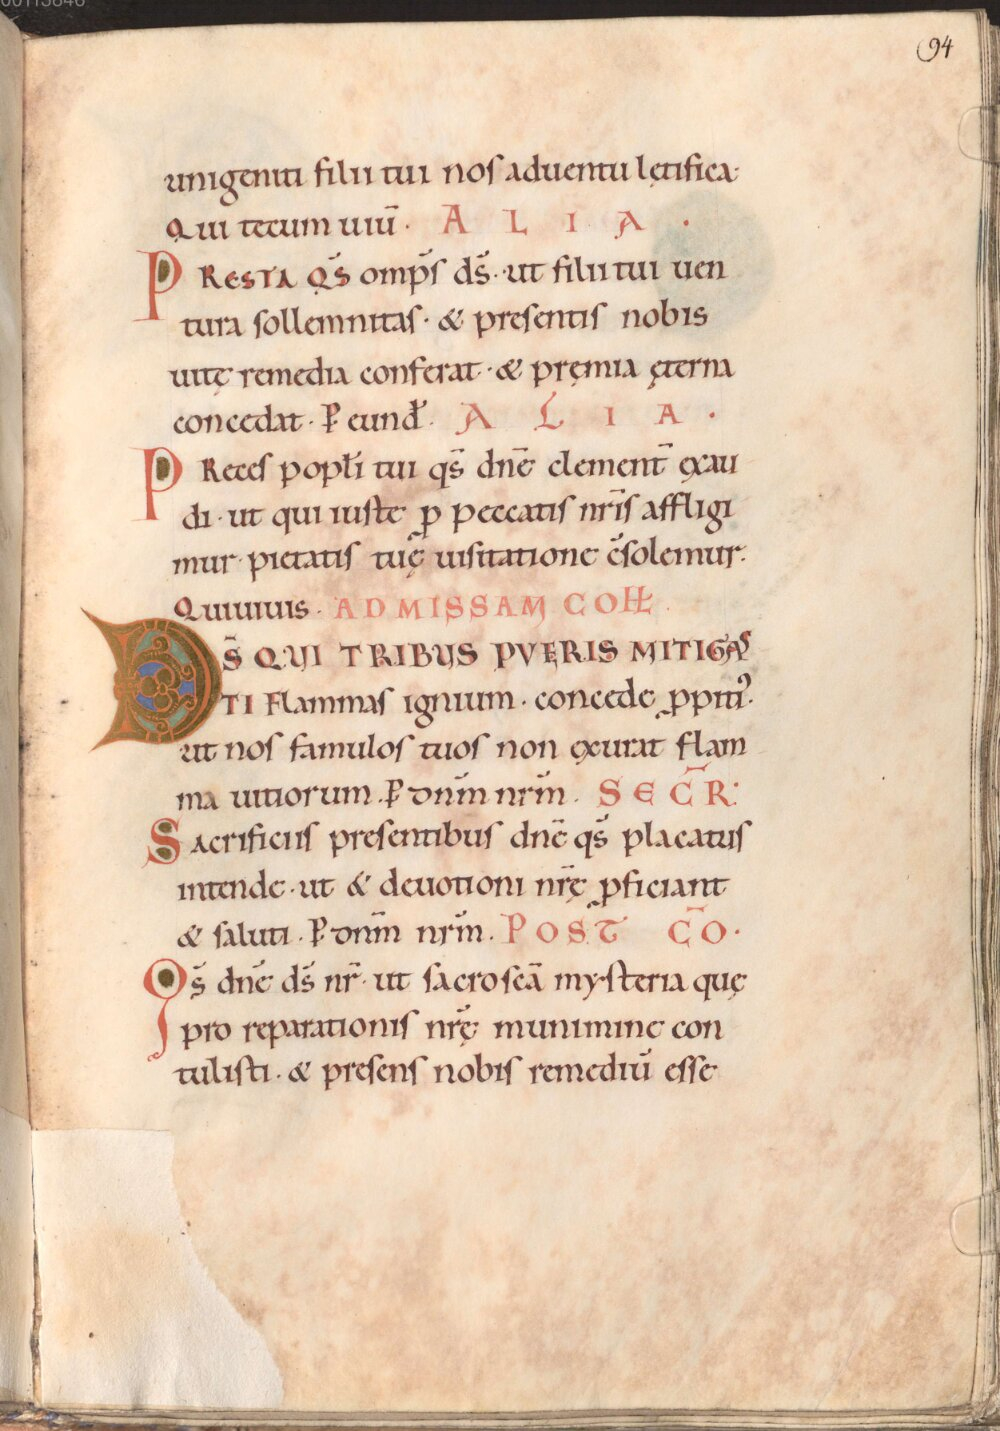 94
unigeniti filii tui nos aduentu lętifica·
Qui tecum uiū· ALIA·
PRESTA Q̄S omp̄s d̄s· ut filii tui uen
tura sollemnitas· & presentis nobis
uitę remedia conferat· & pręmia ęterna
concedat· P̲ eund̄· ALIA·
PReces popłi tui qs̄ dn̄e clement̄ exau
di· ut qui iuste ꝓ peccatis nr̄is affligi
mur· pietatis tuę uisitatione c̄solemur·
Quiuiuis· AD MISSAM COLL·
DS̄ QUI TRIBUS PVERIS MITIGAS
TI Flammas ignium· concede ꝓpitiꝰ·
ut nos famulos tuos non exurat flam
ma uitiorum· P̲ dnm̄ nrm̄· SECR̄·
Sacrificiis presentibus dn̄e qs̄ placatus
intende· ut & deuotioni nr̄ę ꝓficiant
& saluti· P̲ dnm̄ nrm̄· POST CŌ·
Qs̄ dn̄e ds̄ nr̄· ut sacroscā mysteria quę
pro reparationis nr̄ę munimine con
tulisti· & presens nobis remediū esse